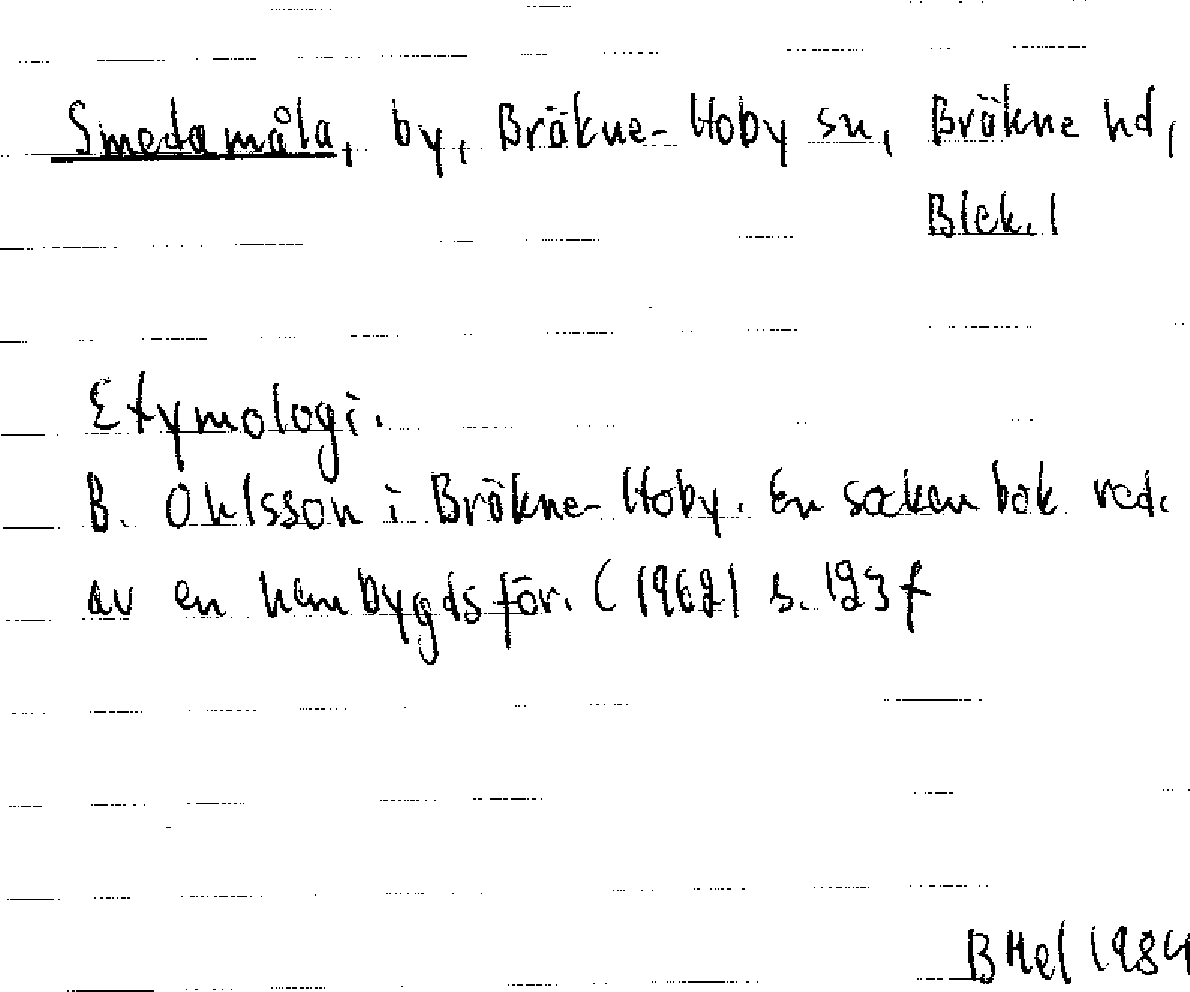 Smedamåla, by, Bräkne-Hoby sn, Bräkne hd,
Blek. l
Etymologi.
B. Ohlsson i Bräkne-Hoby. En sockenbok red.
av en hembygdsför. (1962) s. 123 f
BHel 1984